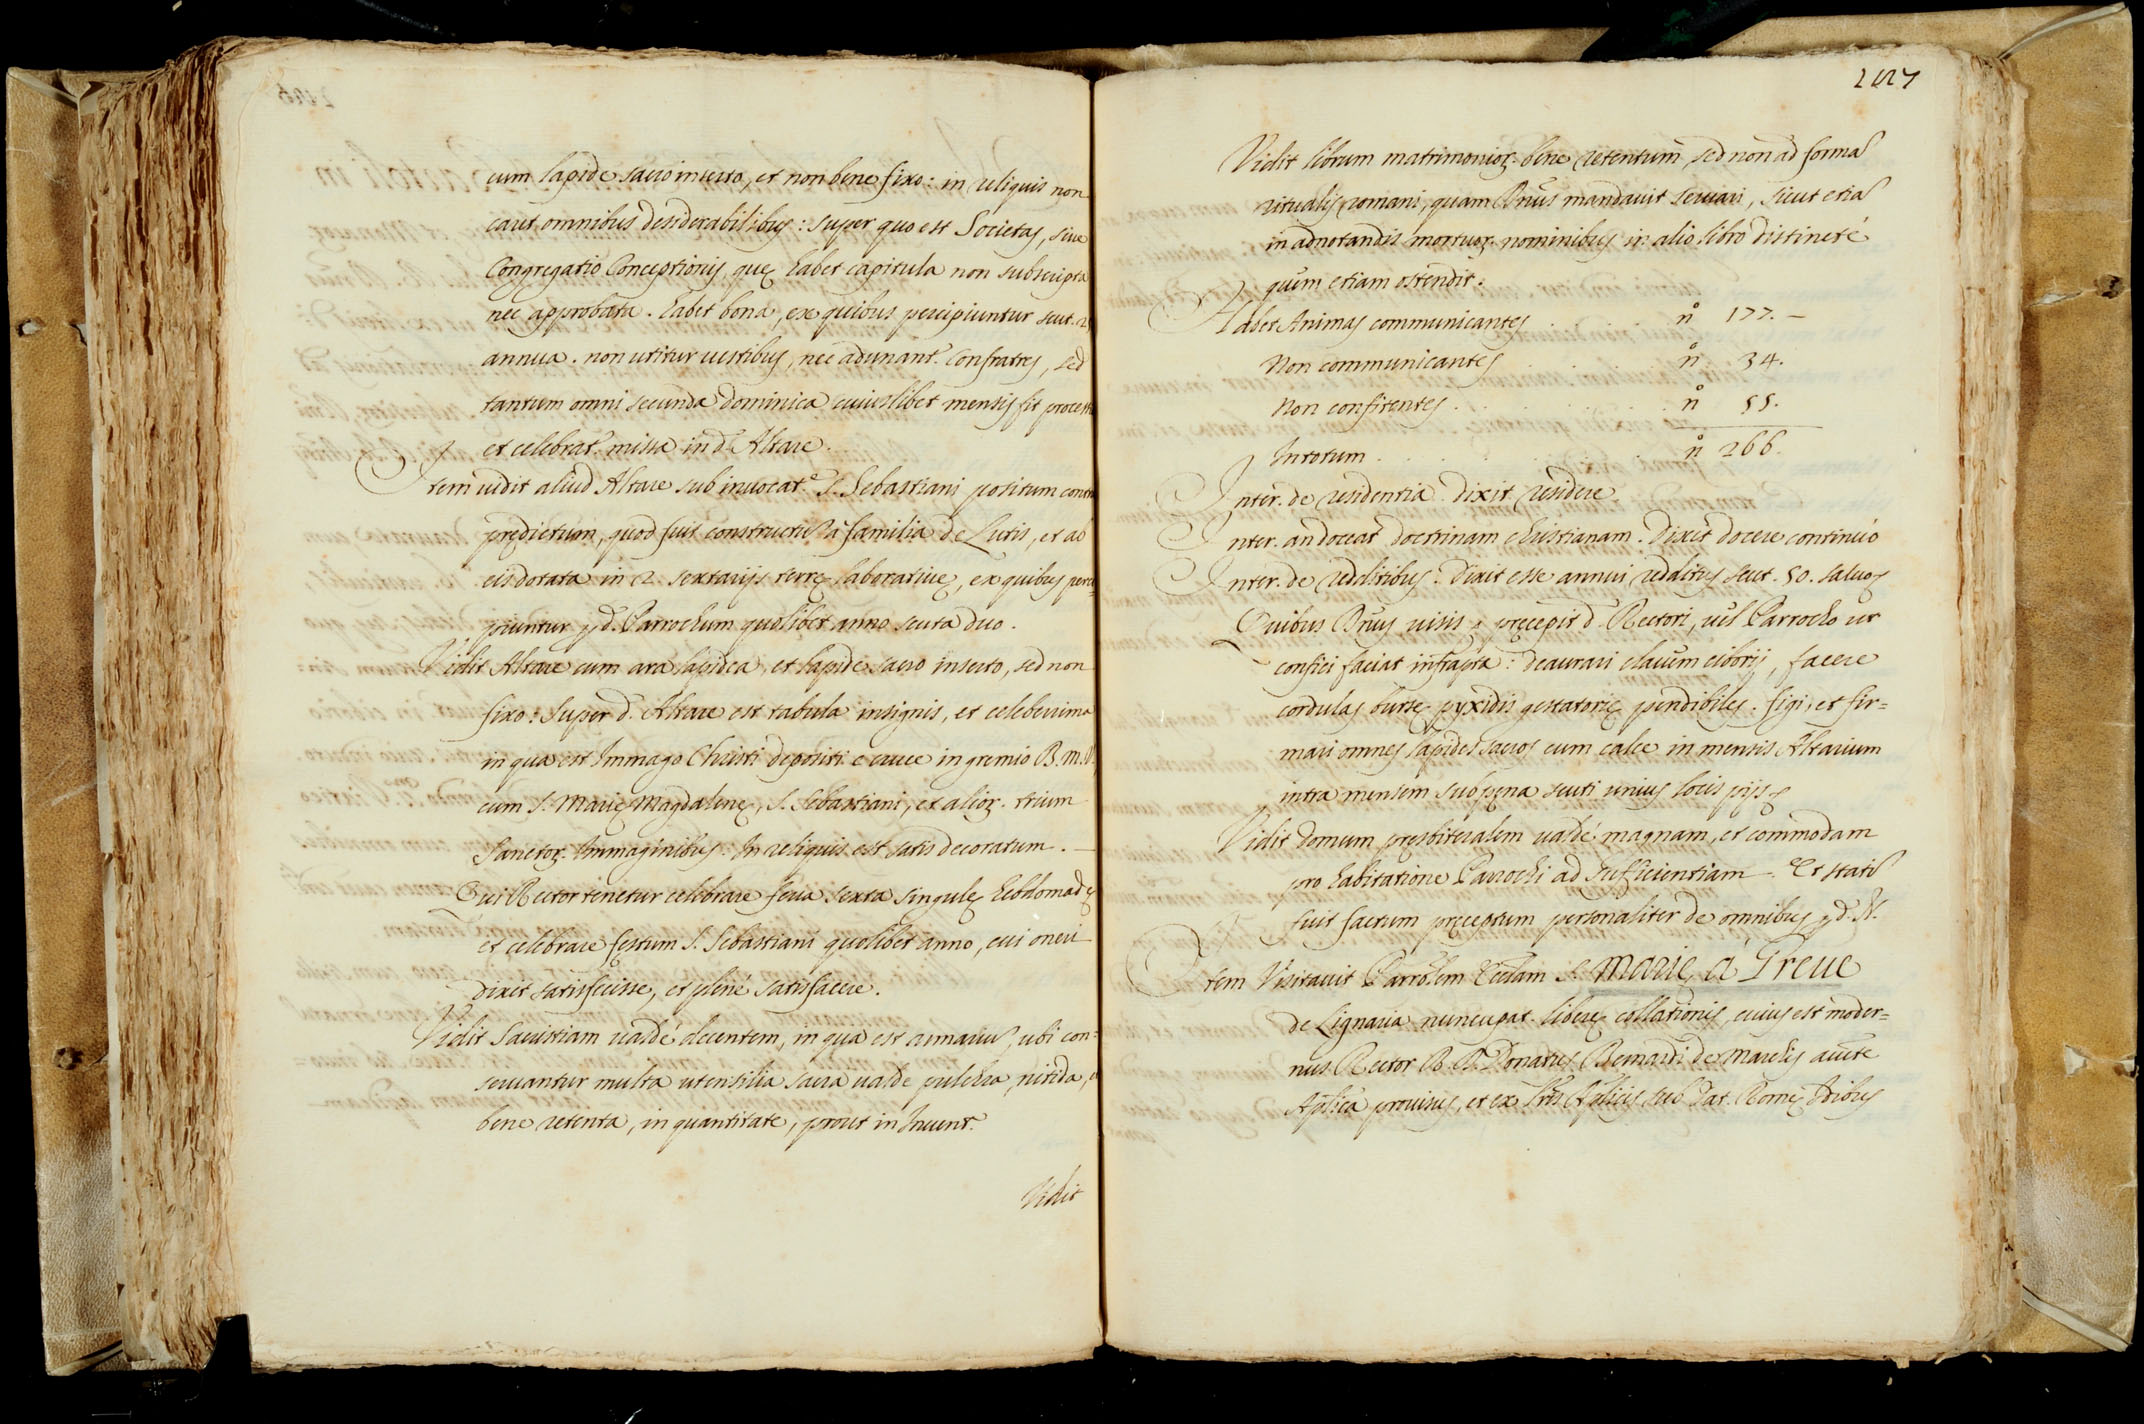 cum lapide sacro inserto, et non bene fixo: in reliquis non
caret omnibus desiderabilibus: super quo est Societas, sive
Congregatio Conceptionis, quę habet capitula non subscripta
nec approbata. habet bona, ex quibus percipiuntur scut.
annua. non utitur vestibus, nec adunant. Confratres, sed
tantum omni secunda dominica cuiuslibet mensis fit process
et celebrat. missa in d. Altare.
Item vidit aliud Altare sub invocat.e S. Sebastiani positum contra
prędictum, quod fuit constructū à familia de Lutis, et ab
eis dotata in 2. sextarijs terrę laborative, ex quibus perci=
piuntur p d. Parrochum quolibet anno scuta duo.
Vidit Altare cum ara lapidea, et lapide sacro inserto, sed non
fixo: Super d. Altare est tabula insignis, et celeberrima
in qua est Immago Christi depositi è cruce in gremio B. M. V.
cum S. Marię Magdalenę, S. Sebastiani, et alioꝝ. trium
Sanctoꝝ. Immaginibus. In reliquis est satis decoratum. —
Qui Rector tenetur celebrare feria sexta singulę hebdomadę
et celebrare festum S. Sebastiani quolibet anno, cui oneri
dixit satisfecisse, et plenè satisfacere.
Vidit Sacristiam valdè decentem, in qua est armariū, ubi con=
servantur multa utensilia sacra valde pulchra, nitida, e
bene retenta, in quantitate, prout in Invent.
Vidit
Vidit librum matrimonioꝝ. bene retentum sed non ad formā
ritualis romani, quam D'nus mandavit servari, sicut etiā
in adnotandis mortuoꝝ. nominibus in alio libro distinctè
quem etiam ostendit.
Habet Animas communicantes . n.o 177. —
Non communicantes . . . . . n.o 34.
Non confitentes . . . . . . n.o 55.
In totum . . . . . . n.o 266.
Inter. de residentia. dixit residere
Inter. an doceat doctrinam christianam. Dixit docere continuò
Inter. de redditibus. Dixit esse annui redditus scut. 50. salvo
Quibus D'nus visis pręcepit d. Rectori, vel Parrocho ut
confici faciat infrapta: deaurari clavum ciborij, facere
cordulas bursę pyxidis gestatorię pendibiles. figi, et fir=
mari omnes lapides sacros cum calce in mensis Altarium
intra mensem sub pena scuti unius locis pijs
Vidit domum presbiteralem valdè magnam, et commodam
pro habitatione Parrochi ad sufficientiam. Et statī
fuit factum pręceptum personaliter de omnibus p d. N.
Item Visitavit Parro'lem Ecc'lam S. Marię à Greue
de Lignaria nuncupat. liberę collationis, cuius est moder=
nus Rector R. D. Donatus Bernardi de Marelis auc'te
Ap'lica provisus, et ex L'ris Ap'licis sub Dat. Romę Idibus